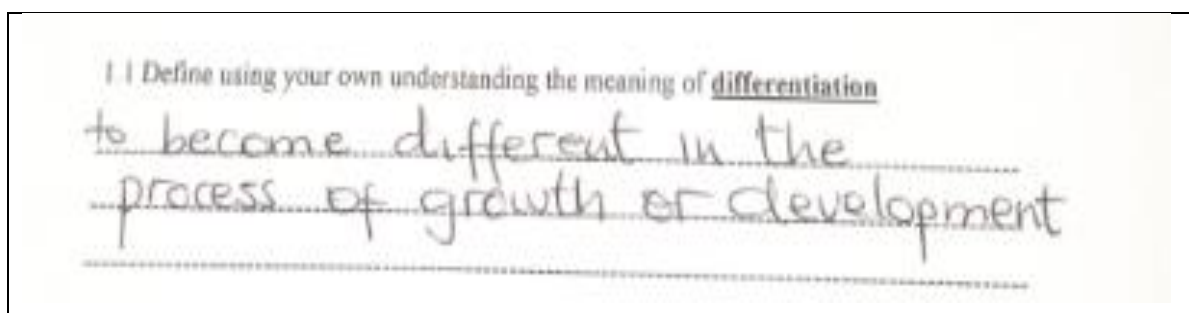 1 1 Define using your own understanding the meaning of differentiation
to become different in the
process of growth or development